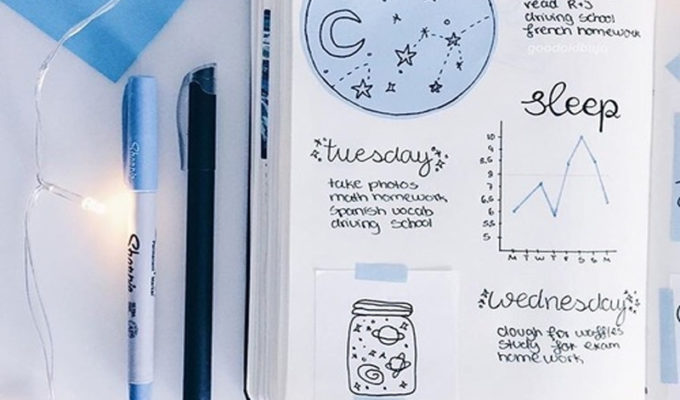 read R+J
driving school
french homework
goodoldbujo
sleep
10
9
8.5
8
7.5
7
6.5
6
5.5
5
M T W T F S S M
tuesday
take photos
math homework
spanish vocab
driving school
wednesday
dough for waffles
study for exam
homework
Sharpie
Sharpie